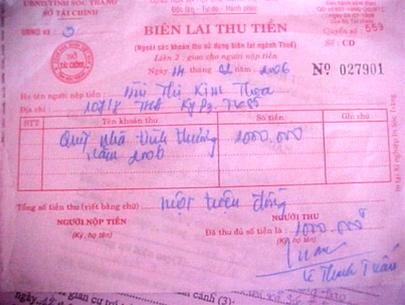 UBND TỈNH SÓC TRĂNG
SỞ TÀI CHÍNH
Độc lập - Tự do - Hạnh phúc
BIÊN LAI THU TIỀN
(Ngoài các khoản thu sử dụng biên lai ngành Thuế)
Liên 2 : giao cho người nộp tiền
Ngày 14 tháng 02 - 2006
Quyển số 559
Số : CD
Nº 027901
Họ tên người nộp tiền : Thị Kim Thoa
Địa chỉ :
STT
Tên khoản thu
Số tiền
Ghi chú
Quỹ nhà tình thương
năm 2006
1000.000
Tổng số tiền thu (viết bằng chữ) một triệu đồng
NGƯỜI NỘP TIỀN
(Ký, họ tên)
NGƯỜI THU
Đã thu đủ số tiền là : 1000.000đ
(Ký, họ tên)
Lê Thanh Tuấn